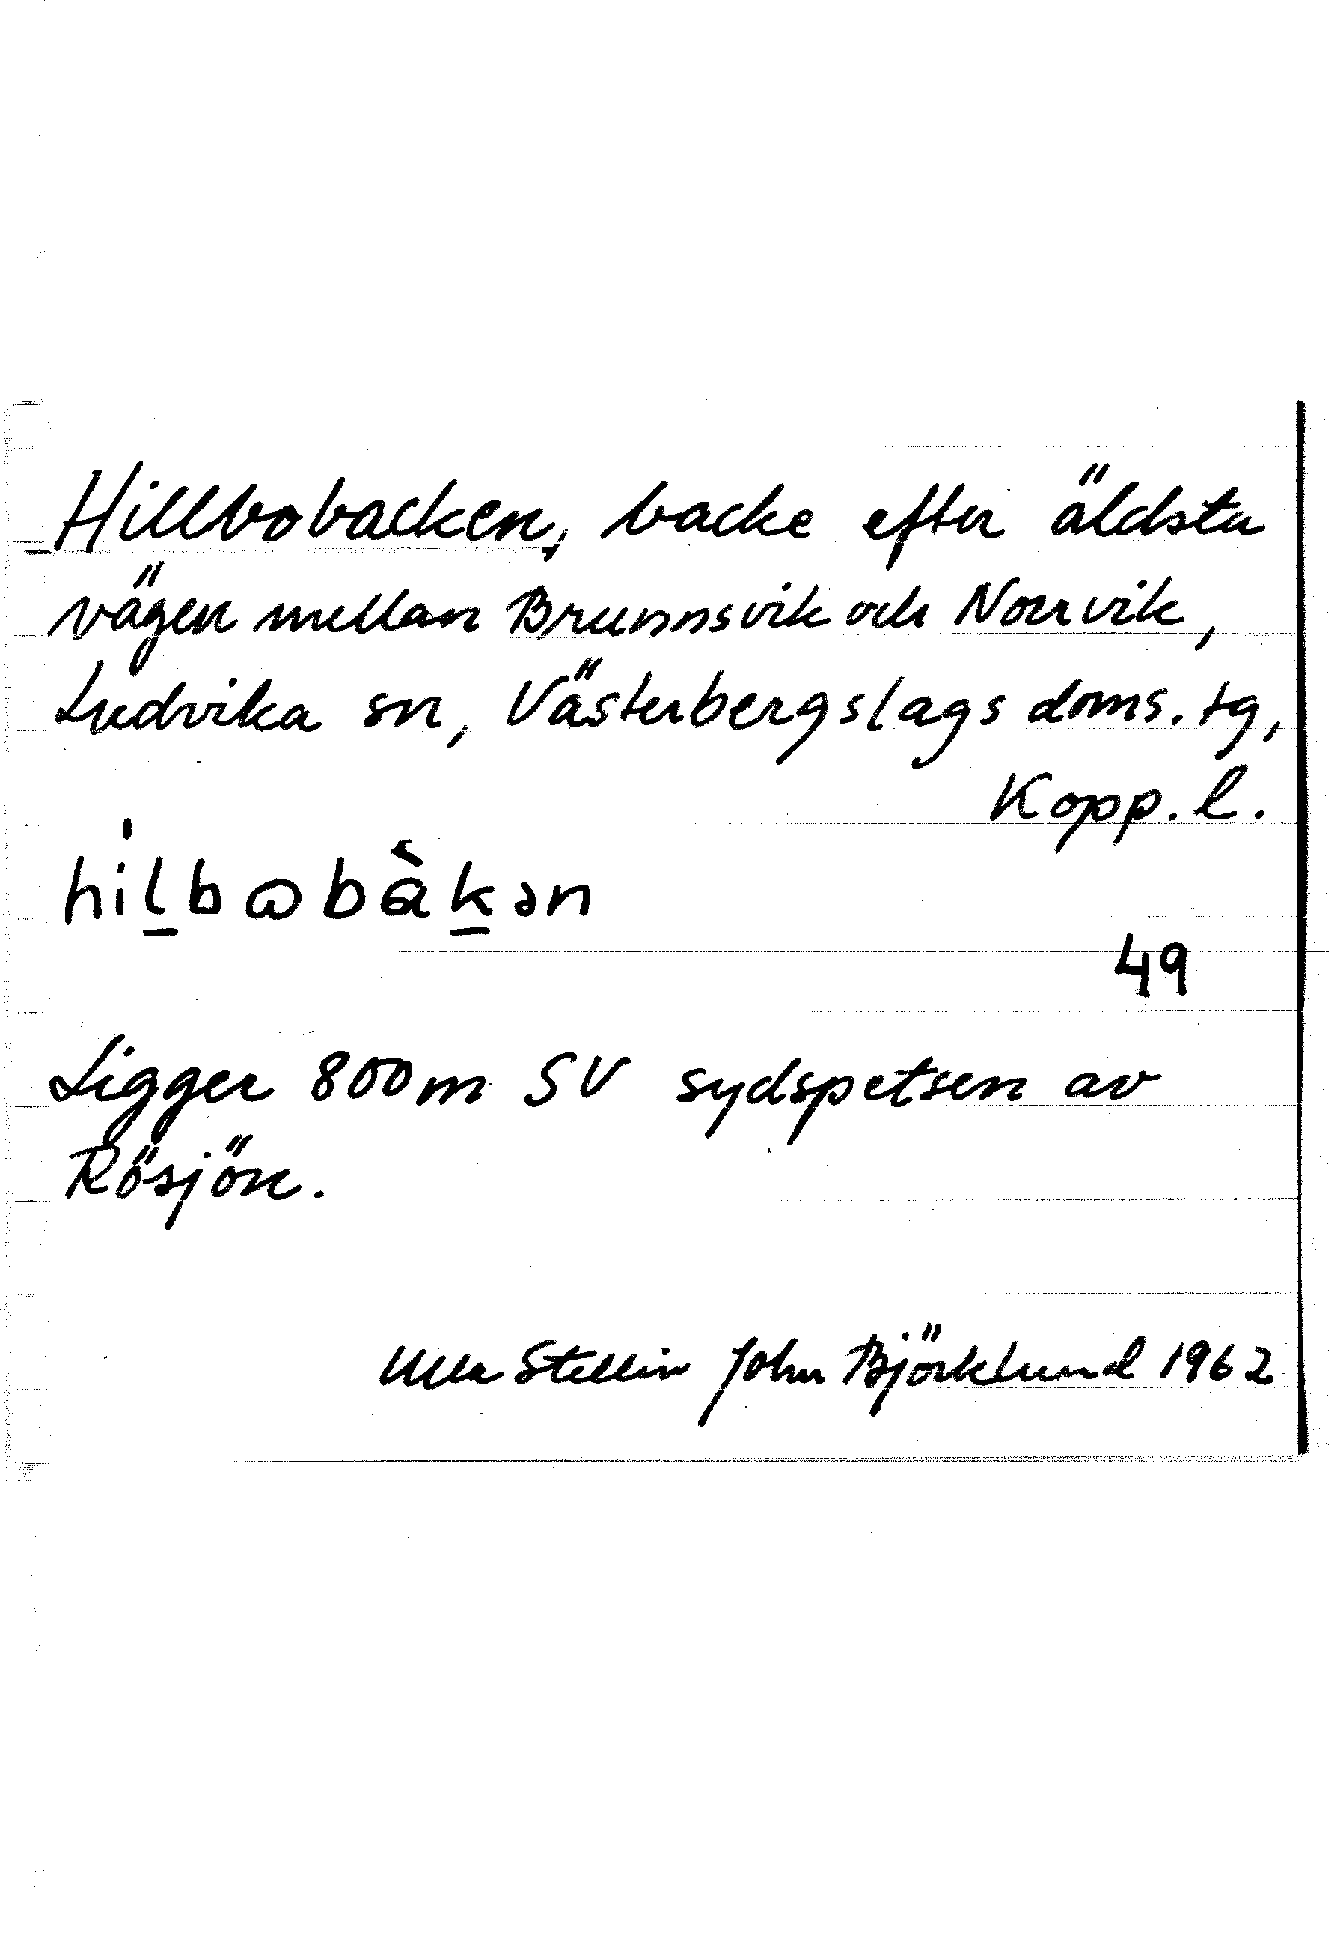 Hillbobacken, backe efter äldsta
vägen mellan Brunnsvik och Norrvik,
Ludvika sn, Västerbergslags doms. tg,
Kopp. l.
hìlbɷbàkən
49
Ligger 800 m SV sydspetsen av
Rösjön.
Ulla Stellin John Björklund 1962